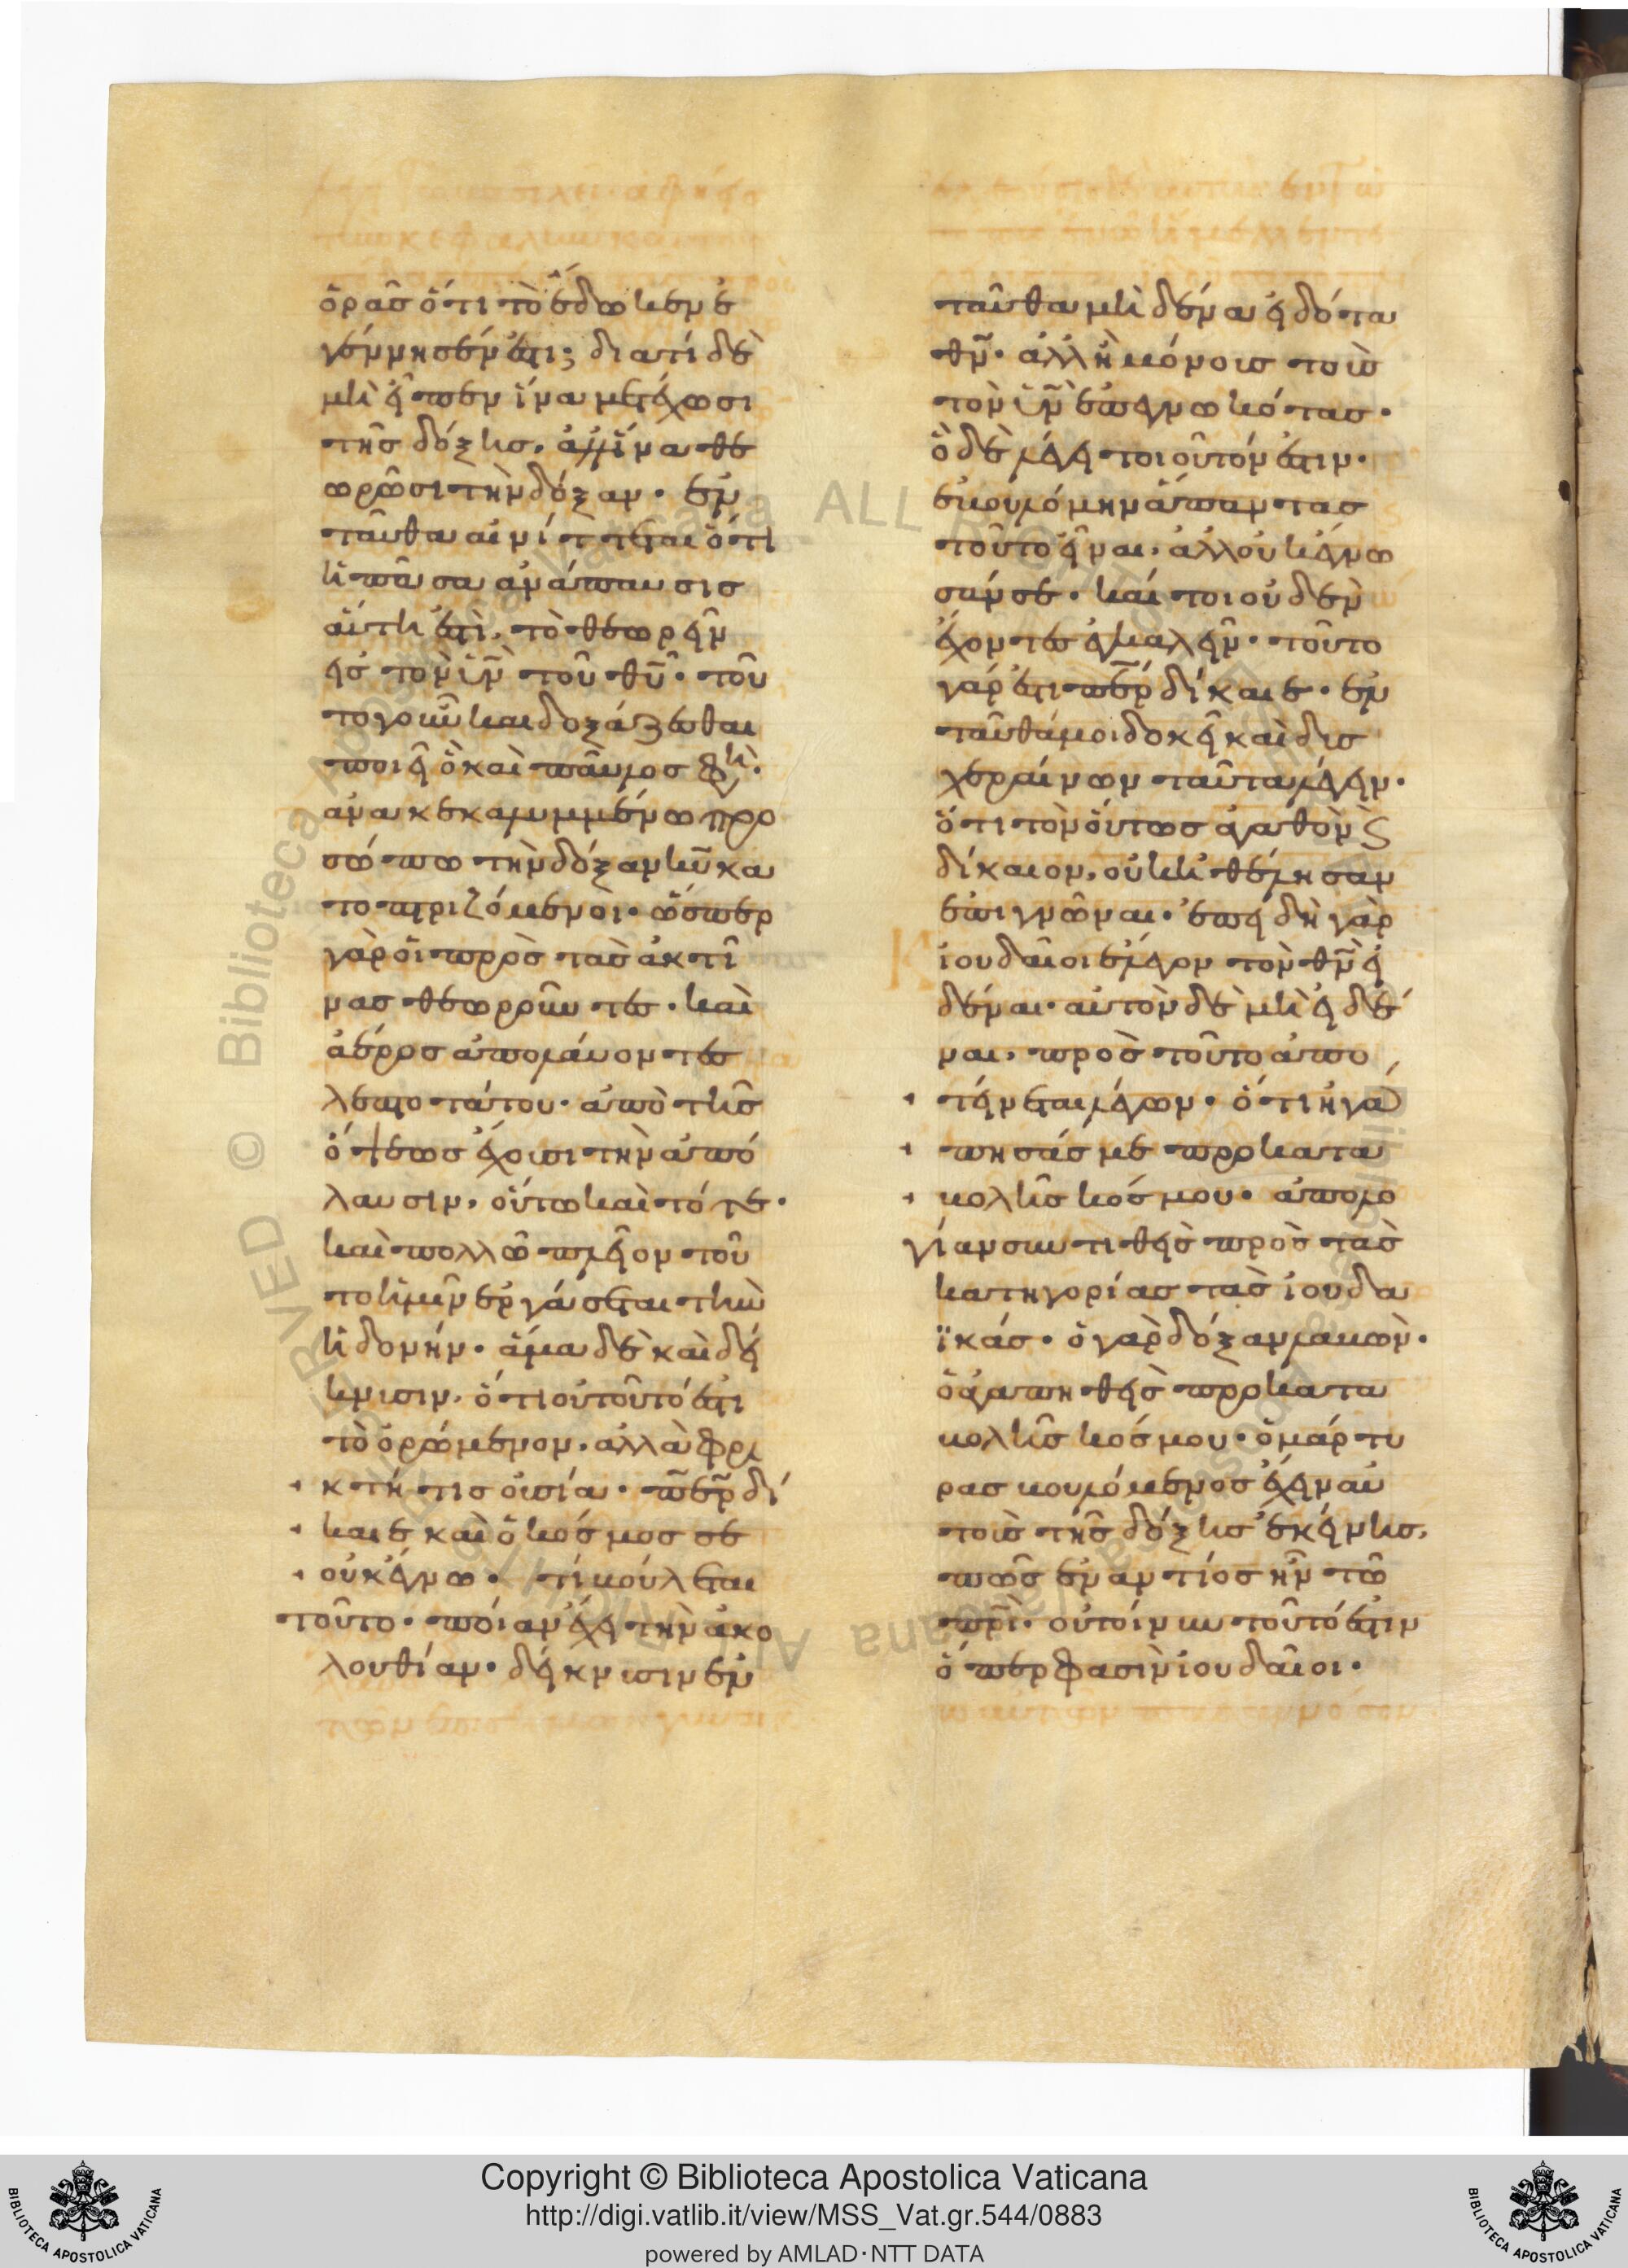 ὁρᾶσ ὅτι τὸ ἔδωκεν ἐ
γέννησέν ἐστι; διατί δὲ
μὴ εἶπεν ἵνα μετέχωσι
τῆσ δόξησ, ἀλλ' ἵνα θε
ωρῶσι τὴν δόξαν· ἐν
ταῦθα αἰνίττεται ὅτι
ἡ πᾶσα ἀνάπαυσισ
αὕτη ἐστὶ, τὸ θεωρεῖν
εἰσ τὸν ὑν̅ τοῦ θυ̅· τοῦ
το γοῦν καὶ δοξάζεσθαι
ποιεῖ ὃ καὶ παῦλοσ φη·
ἀνακεκαλυμμένω προ
σώπω τὴν δόξαν κυ̅ κα
τοπτριζόμενοι· ὥσπερ
γὰρ οἱ πρὸσ τὰσ ἀκτῖ
νασ θεωροῦντεσ· καὶ
ἀέροσ ἀπολάυοντεσ
λεπτοτάτου· ἀπὸ τῆσ
ὄψεωσ ἔχουσι τὴν ἀπό
λαυσιν, οὕτω καὶ τότε·
καὶ πολλῶ πλεῖον τοῦ
το ἡμῖν ἐργάσεται τὴν
ἡδονήν· ἅμα δὲ καὶ δεί
κνυσιν, ὅτι οὐ τοῦτό ἐστι
τὸ ὁρώμενον, ἀλλὰ φρι
κτή τισ οὐσία· περ̅ δί
καιε καὶ ὁ κόσμοσ σε
οὐκ ἔγνω· τί βούλεται
τοῦτο· ποίαν ἔχει τὴν ἀκο
λουθίαν· δείκνυσιν ἐν
ταῦθα μηδένα εἰδότα
θν̅· ἀλλ' ἢ μόνουσ τοὺσ
τὸν ὑν̅ ἐπεγνωκότασ·
ὃ δὲ λέγει τοιοῦτόν ἐστιν·
ἐβουλόμην ἅπαντασ
τοῦτο εἶναι, ἀλλ' οὐκ ἔγνω
σάν σε· καί τοι οὐδὲν
ἔχοντεσ ἐγκαλεῖν· τοῦτο
γάρ ἐστι περ̅ δίκαιε· ἐν
ταῦθά μοι δοκεῖ καὶ δυσ
χεραίνων ταῦτα λέγειν·
ὅτι τὸν οὕτωσ ἀγαθὸν ϗ
δίκαιον, οὐκ ἠθέλησαν
ἐπιγνῶναι· ἐπειδὴ γὰρ
ἰουδαῖοι ἔλεγον τὸν θν̅ εἰ
δέναι· αὐτὸν δὲ μὴ εἰδέ
ναι, πρὸσ τοῦτο ἀπο
τείνεται λέγων· ὅτι ἠγά
πησάσ με πρὸ κατα
βολῆσ κόσμου· ἀπολο
γίαν συντιθεὶσ πρὸσ τὰσ
κατηγορίασ τὰσ ἰουδα
ϊκάσ· ὁ γὰρ δόξαν λαβὼν·
ὁ ἀγαπηθεὶσ πρὸ κατα
βολῆσ κόσμου· ὁ μάρτυ
ρασ βουλόμενοσ ἔχειν αὐ
τοὺσ τῆσ δόξησ ἐκείνησ,
πῶσ ἐναντίοσ ἦν τῶ
πρι̅· οὐ τοίνυν τοῦτό ἐστιν
ὅπερ φασὶν ἰουδαῖοι·
Copyright © Biblioteca Apostolica Vaticana
http://digi.vatlib.it/view/MSS_Vat.gr.544/0883
powered by AMLAD·NTT DATA
BIBLIOTECA APOSTOLICA VATICANA
BIBLIOTECA APOSTOLICA VATICANA